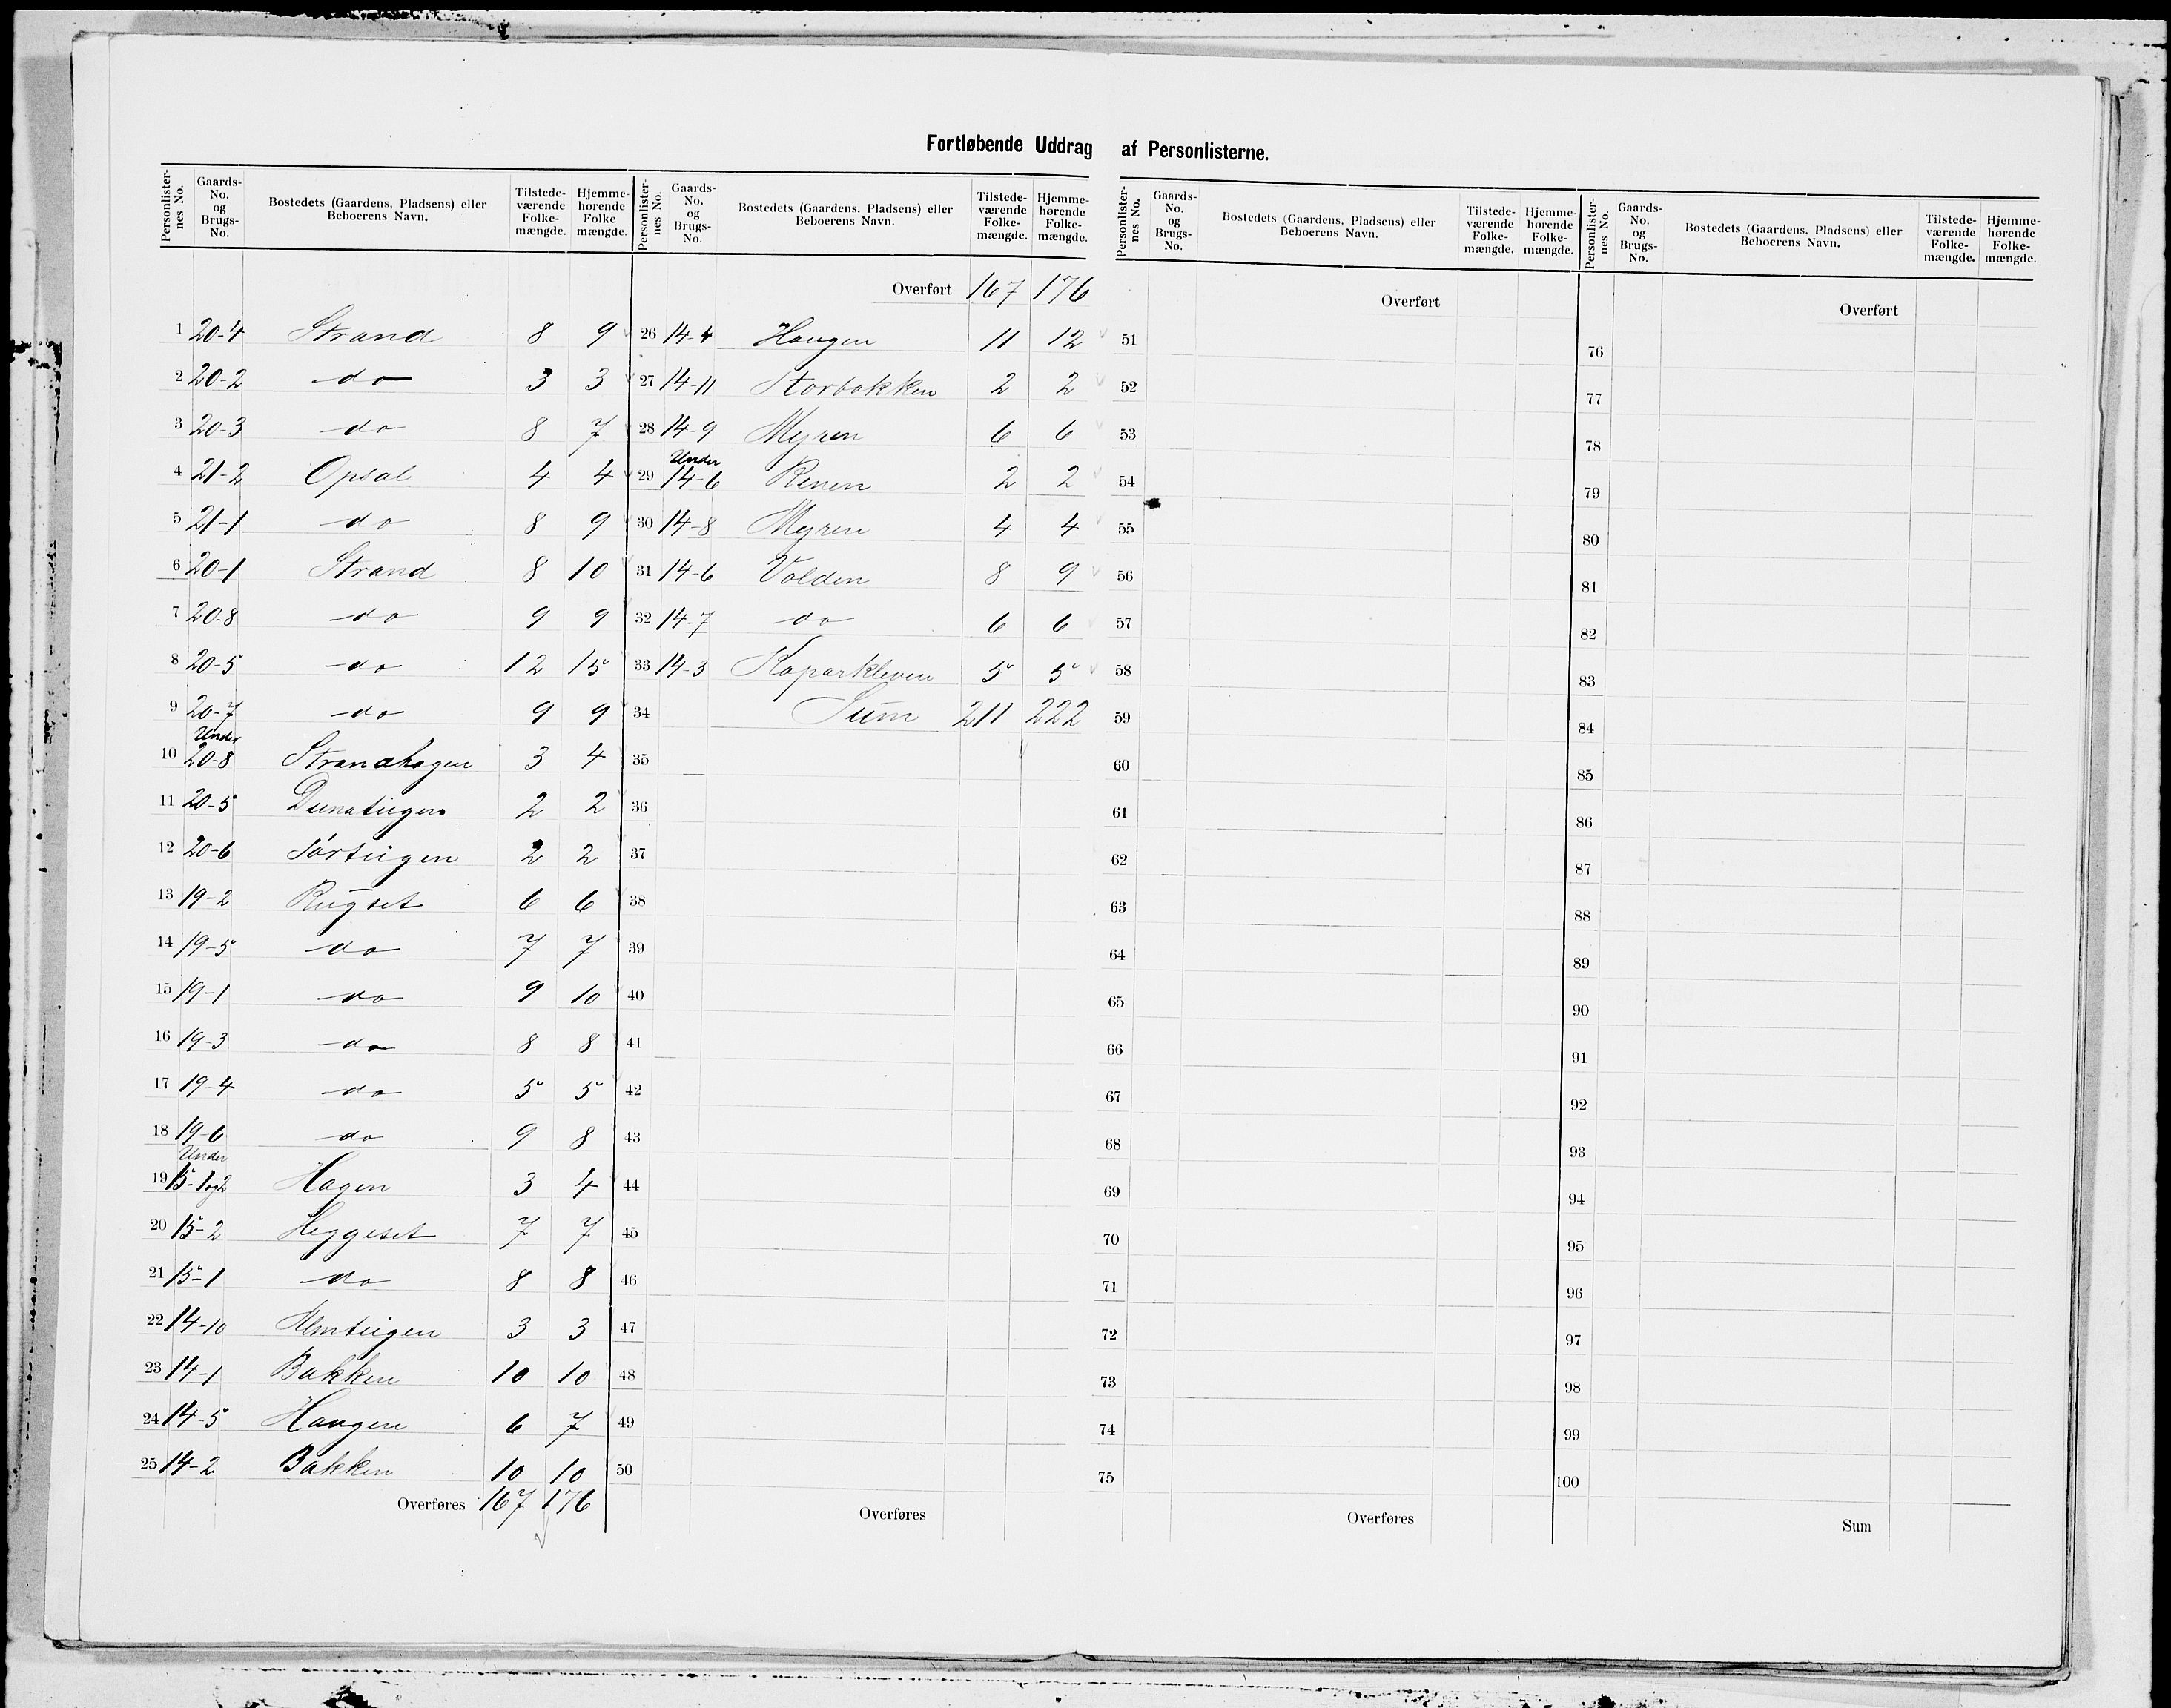 Fortløbende Uddrag af Personlisterne.
Personlister-nes No. Gaards-No. og Brugs-No. Bostedets (Gaardens, Pladsens) eller Beboerens Navn. Tilstede-værende Folke-mængde. Hjemme-hørende Folke mængde.
1 20-4 Strand 8 9
2 20-2 do 3 3
3 20-3 do 8 7
4 21-2 Opsal 4 4
5 21-1 do 8 9
6 20-1 Strand 8 10
7 20-8 do 9 9
8 20-5 do 12 15
9 20-7 do 9 9
10 Under 20-8 Strandhagen 3 4
11 20-5 Dunateigen 2 2
12 20-6 Tørteigen 2 2
13 19-2 Rugset 6 6
14 19-5 do 7 7
15 19-1 do 9 10
16 19-3 do 8 8
17 19-4 do 5 5
18 19-6 do 9 8
19 Under 15-1og2 Hagen 3 4
20 15-2 Heggeset 7 7
21 15-1 do 8 8
22 14-10 Almteigen 3 3
23 14-1 Bakken 10 10
24 14-5 Haugen 6 7
25 14-2 Bakken 10 10
Overføres 167 176
Personlister-nes No. Gaards-No. og Brugs-No. Bostedets (Gaardens, Pladsens) eller Beboerens Navn. Tilstede-værende Folke-mængde. Hjemme-hørende Folke-mængde.
Overført 167 176
26 14-4 Haugen 11 12
27 14-11 Storbakken 2 2
28 14-9 Myren 6 6
29 Under 14-6 Renen 2 2
30 14-8 Myren 4 4
31 14-6 Volden 8 9
32 14-7 do 6 6
33 14-3 Kaparkleven 5 5
34 Sum 211 222
35
36
37
38
39
40
41
42
43
44
45
46
47
48
49
50
Overføres
Personlister-nes No. Gaards-No. og Brugs-No. Bostedets (Gaardens, Pladsens) eller Beboerens Navn. Tilstede-værende Folke-mængde. Hjemme-hørende Folke-mængde.
Overført
51
52
53
54
55
56
57
58
59
60
61
62
63
64
65
66
67
68
69
70
71
72
73
74
75
Overføres
Personlister-nes No. Gaards-No. og Brugs-No. Bostedets (Gaardens, Pladsens) eller Beboerens Navn. Tilstede-værende Folke-mængde. Hjemme-hørende Folke-mængde.
Overført
76
77
78
79
80
81
82
83
84
85
86
87
88
89
90
91
92
93
94
95
96
97
98
99
100
Sum